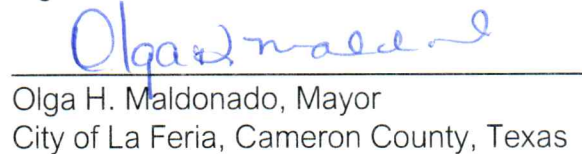 Olga H. Maldonado
Olga H. Maldonado, Mayor
City of La Feria, Cameron County, Texas